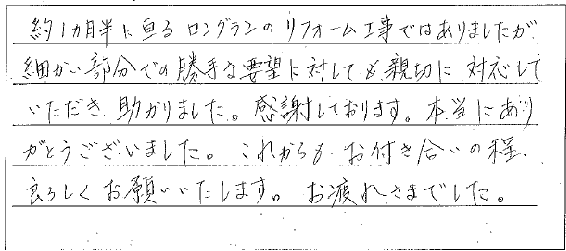 約1カ月半に亘るロングランのリフォーム工事ではありましたが
細かい部分での勝手な要望に対しても親切に対応して
いただき助かりました。感謝しております。本当にあり
がとうございました。これからもお付き合いの程、
良ろしくお願いいたします。お疲れさまでした。